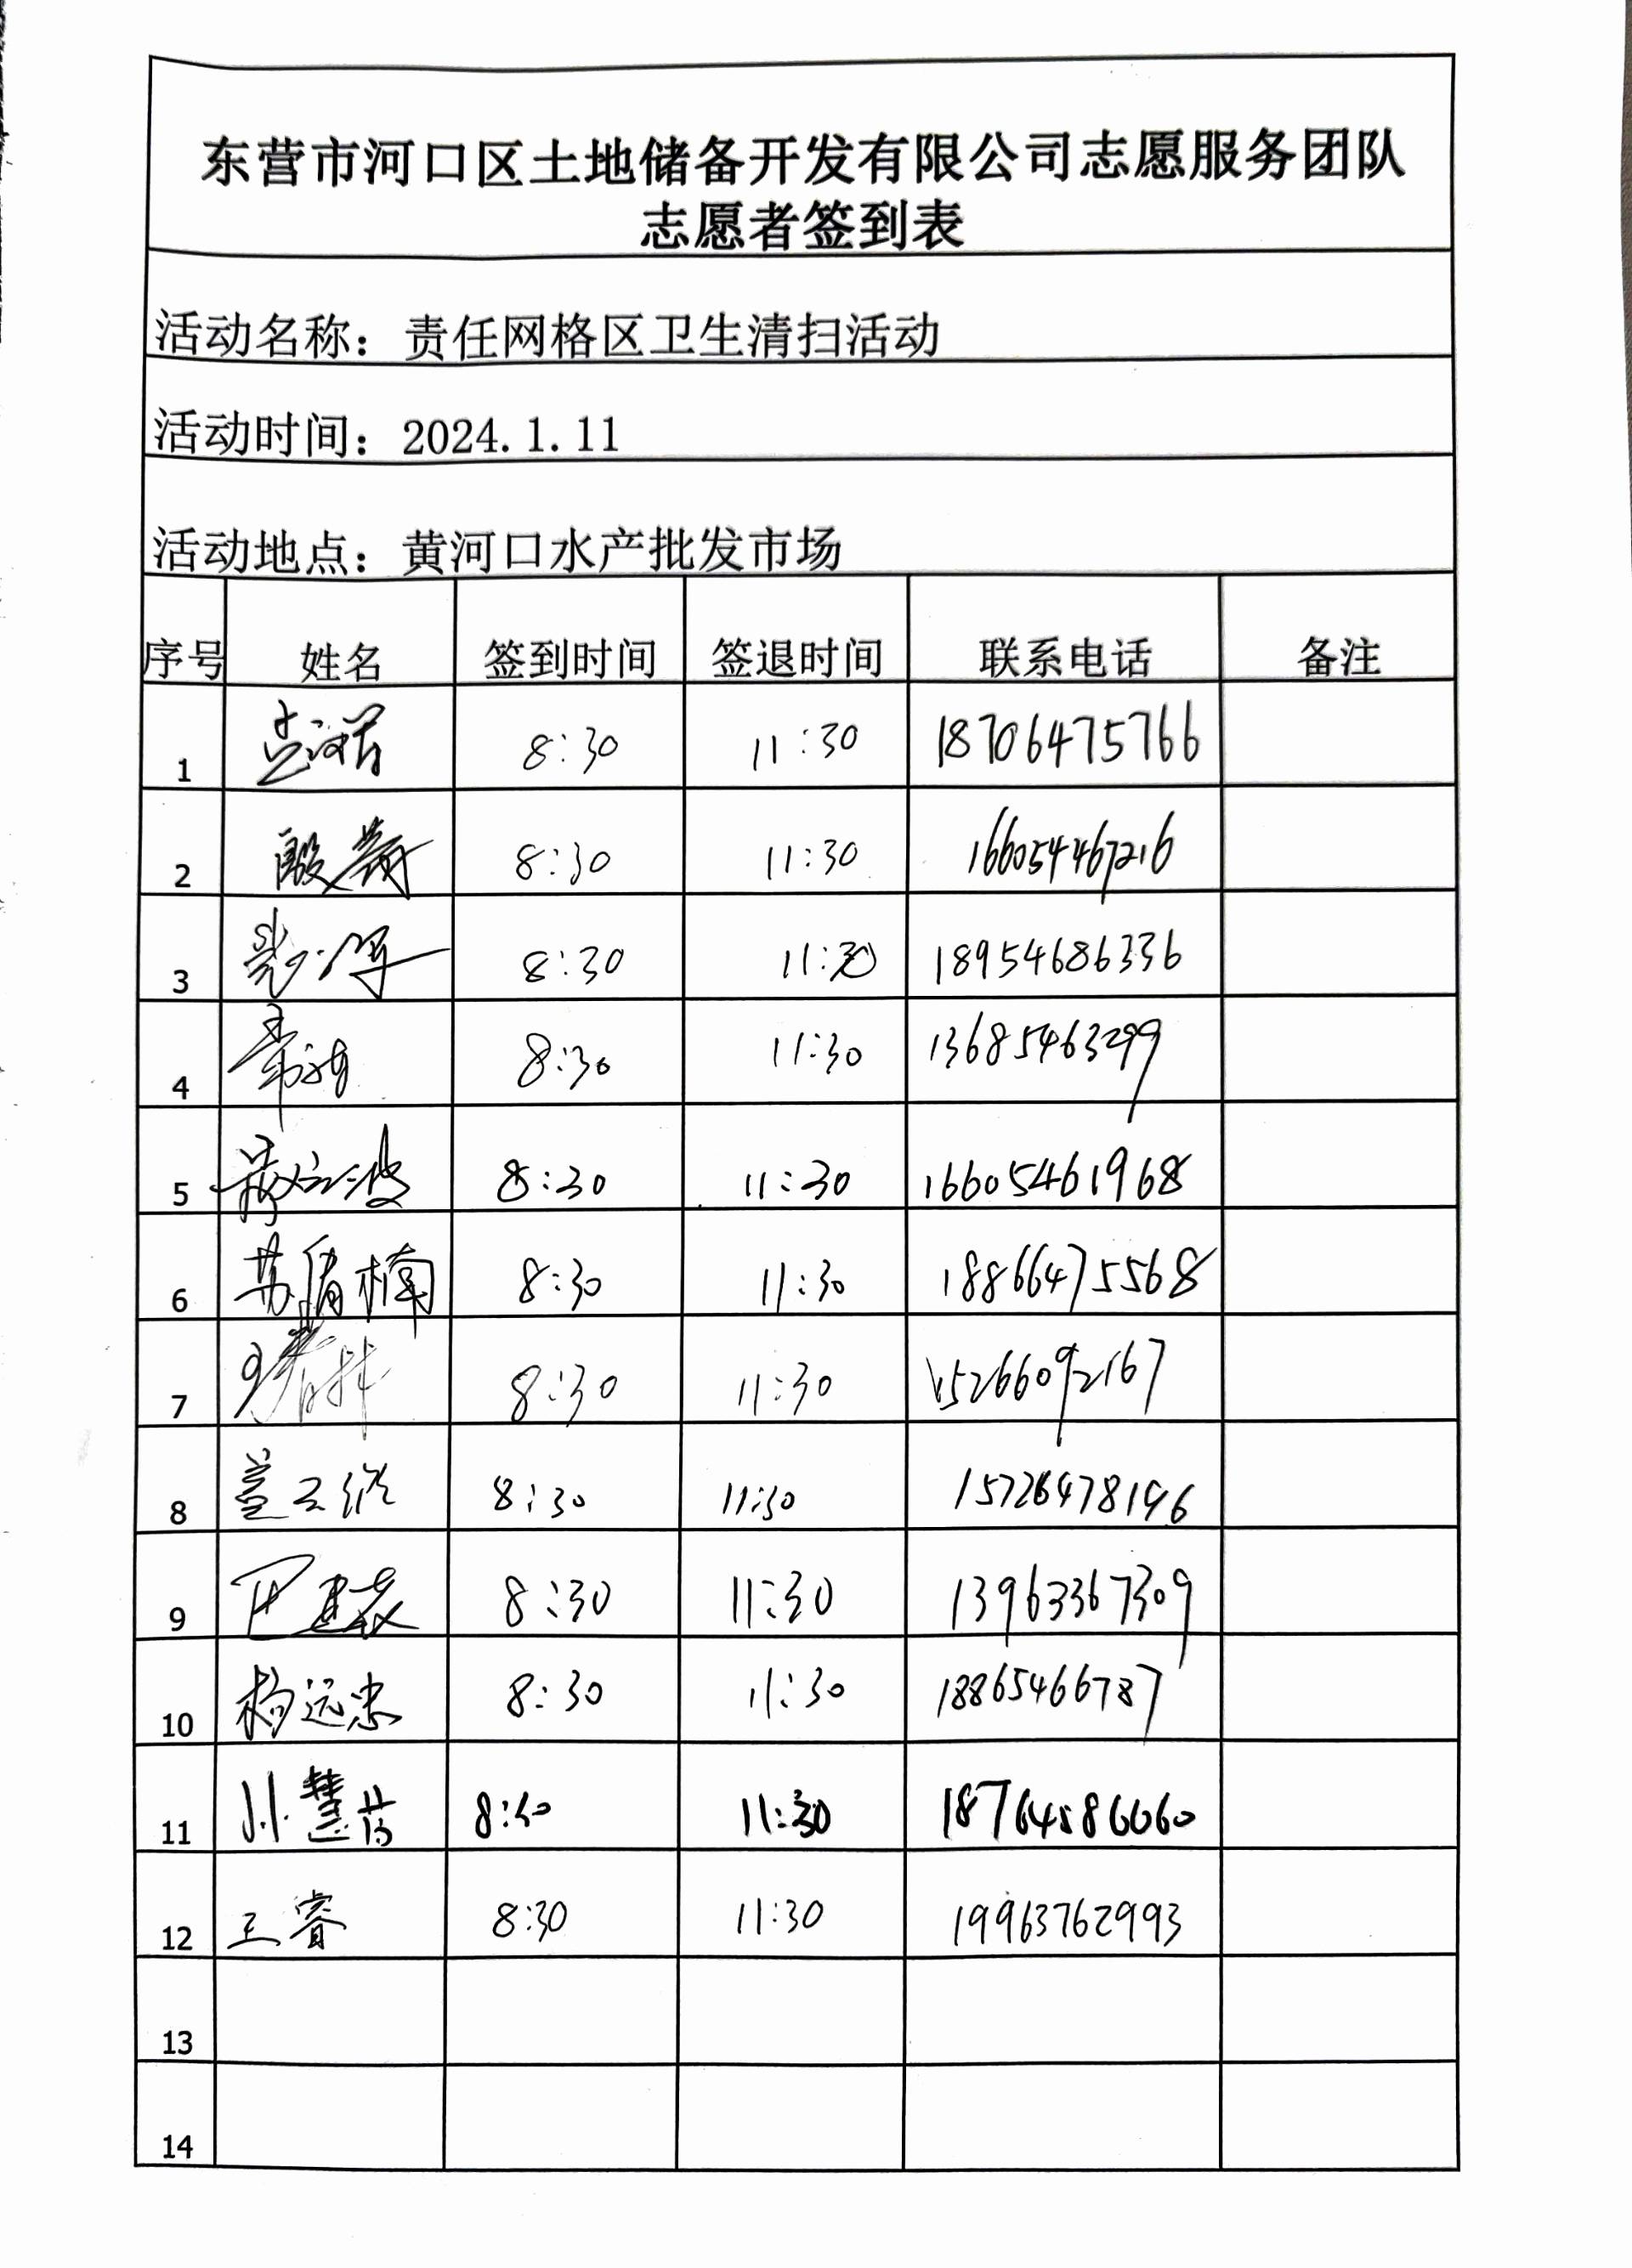 东营市河口区土地储备开发有限公司志愿服务团队
志愿者签到表
活动名称：责任网格区卫生清扫活动
活动时间：2024.1.11
活动地点：黄河口水产批发市场
序号 姓名 签到时间 签退时间 联系电话 备注
1 8:30 11:30 18706475766
2 8:30 11:30 16605467216
3 8:30 11:30 18954686336
4 8:30 11:30 13685463299
5 8:30 11:30 16605461968
6 8:30 11:30 18866475568
7 8:30 11:30 15266092167
8 8:30 11:30 15726478196
9 8:30 11:30 13963367309
10 杨远忠 8:30 11:30 18865466787
11 8:30 11:30 18764586060
12 王睿 8:30 11:30 19963762993
13
14